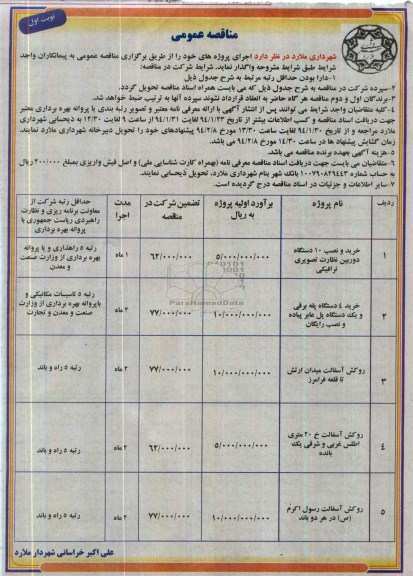 نوبت اول
مناقصه عمومی
شهرداری ملارد در نظر دارد اجرای پروژه های خود را از طریق برگزاری مناقصه عمومی به پیمانکاران واجد
شرایط طبق شرایط مشروحه واگذار نماید. شرایط شرکت در مناقصه:
۱-دارا بودن حداقل رتبه مرتبط به شرح جدول ذیل
۲-سپرده شرکت در مناقصه به شرح جدول ذیل که می بایست همراه اسناد مناقصه تحویل گردد.
۳-برندگان اول و دوم مناقصه هر گاه حاضر به انعقاد قرارداد نشوند سپرده آنها به ترتیب ضبط خواهد شد.
۴-کلیه متقاضیان واجد شرایط می توانند پس از انتشار آگهی با ارائه معرفی نامه معتبر و تصویر رتبه بندی یا پروانه بهره برداری معتبر
جهت دریافت اسناد مناقصه و کسب اطلاعات بیشتر از تاریخ ۹۴/۱/۲۳ لغایت ۹۴/۱/۳۱ از ساعت ۹ لغایت ۱۲/۳۰ به ذیحسابی شهرداری
ملارد مراجعه و از تاریخ ۹۴/۱/۳۰ لغایت ساعت ۱۳/۳۰ مورخ ۹۴/۲/۸ پیشنهادهای خود را تحویل دبیرخانه شهرداری ملارد نمایند.
زمان گشایش پیشنهاد ها در ساعت ۱۴/۳۰ مورخ ۹۴/۲/۸ می باشد.
۵-هزینه آگهی بعهده برنده مناقصه می باشد.
۶-متقاضیان می بایست جهت دریافت اسناد مناقصه معرفی نامه (همراه کارت شناسایی ملی) و اصل فیش واریزی بمبلغ ۲۰۰/۰۰۰ ریال
به حساب شماره ۱۰۰۷۹۰۸۲۹۴۴۳ بانک شهر بنام شهرداری ملارد، تحویل ذیحسابی نمایند.
۷-سایر اطلاعات و جزئیات در اسناد مناقصه درج گردیده است.
ردیف
نام پروژه
برآورد اولیه پروژه
به ریال
تضمین شرکت در
مناقصه
مدت
اجرا
حداقل رتبه شرکت از
معاونت برنامه ریزی و نظارت
راهبردی ریاست جمهوری یا
پروانه بهره برداری
۱
خرید و نصب ۱۰ دستگاه
دوربین نظارت تصویری
ترافیکی
۵/۰۰۰/۰۰۰/۰۰۰
۶۲/۰۰۰/۰۰۰
۱ ماه
رتبه ۵ راهداری و یا پروانه
بهره برداری از وزارت صنعت
و معدن
۲
خرید ۴ دستگاه پله برقی
و یک دستگاه پل عابر پیاده
و نصب رایگان
۱۰/۰۰۰/۰۰۰/۰۰۰
۷۷/۰۰۰/۰۰۰
۲ ماه
رتبه ۵ تاسیسات مکانیکی و
یاپروانه بهره برداری از وزارت
صنعت و معدن و تجارت
ParsNamadData
۳
روکش آسفالت میدان ارتش
تا قلعه فرامرز
۱۰/۰۰۰/۰۰۰/۰۰۰
۷۷/۰۰۰/۰۰۰
۲ ماه
رتبه ۵ راه و باند
۴
روکش آسفالت خ ۲۰ متری
اطلس غربی و شرقی یک
بانده
۵/۰۰۰/۰۰۰/۰۰۰
۶۲/۰۰۰/۰۰۰
۲ ماه
رتبه ۵ راه و باند
۵
روکش آسفالت رسول اکرم
(ص) در هر دو باند
۱۰/۰۰۰/۰۰۰/۰۰۰
۷۷/۰۰۰/۰۰۰
۲ ماه
رتبه ۵ راه و باند
علی اکبر خراسانی شهردار ملارد